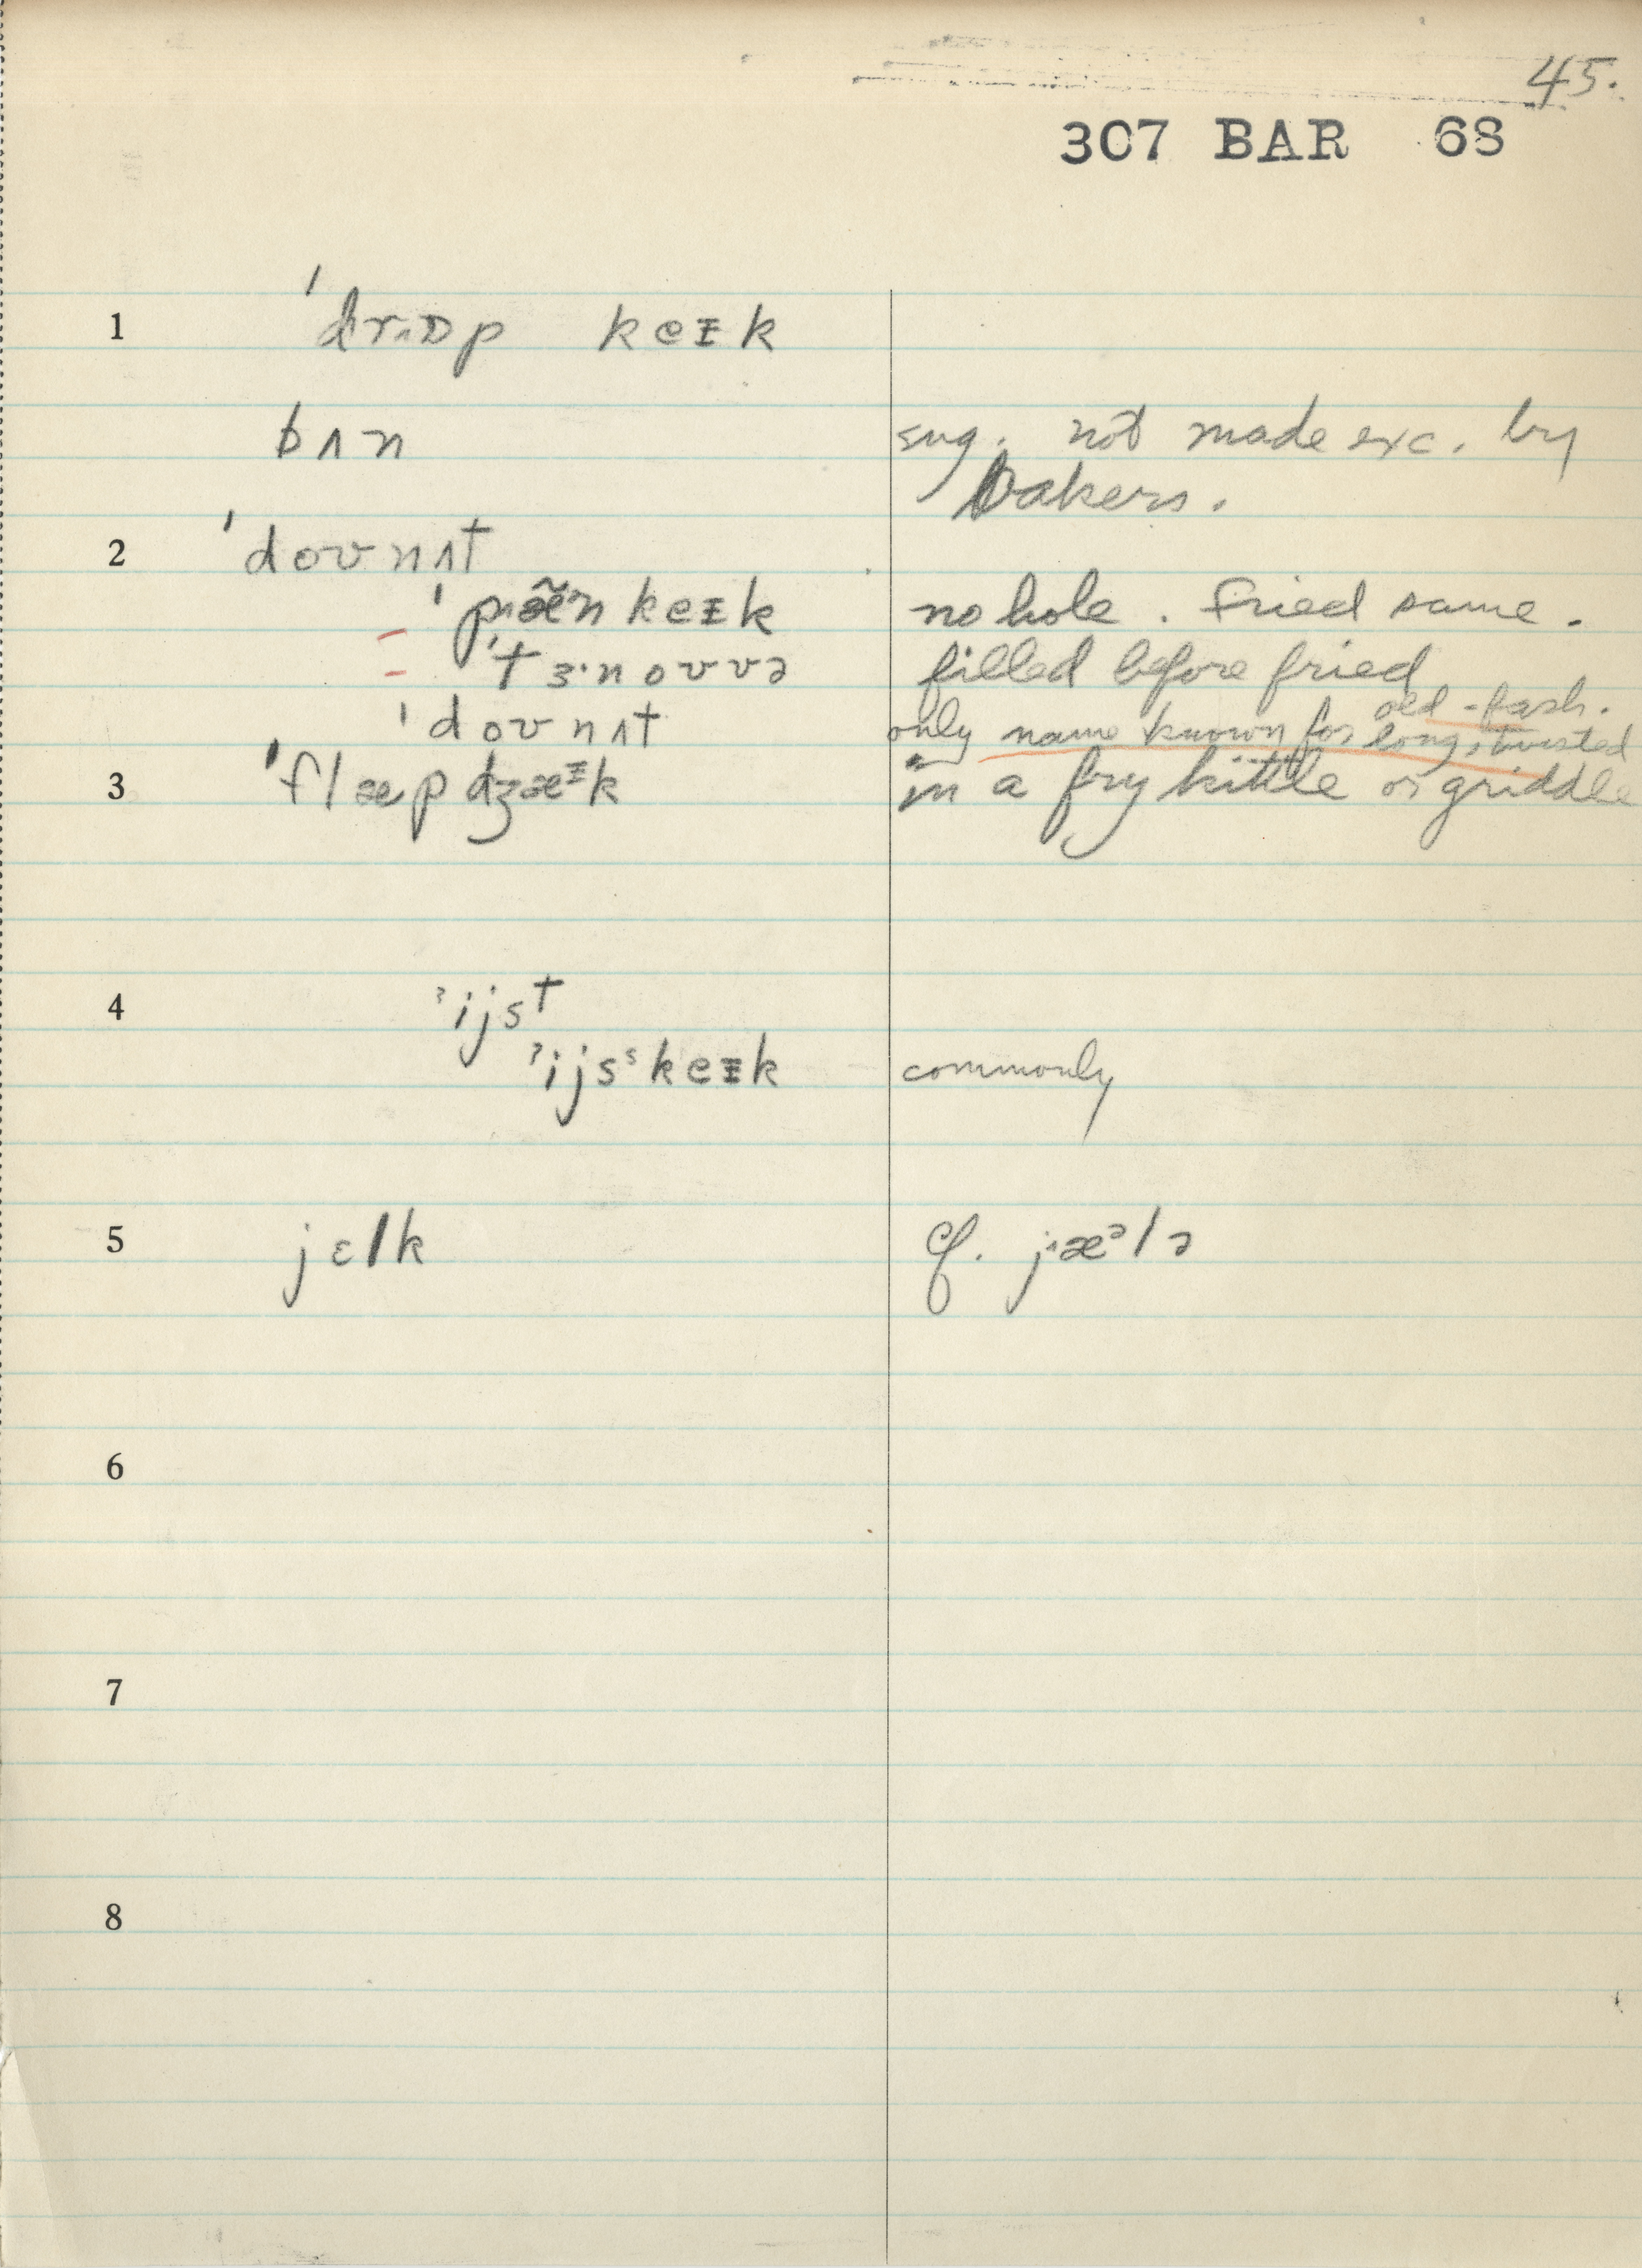 45.
307 BAR 68
1 ˈdrɒp keɪk
bʌn sug. not made exc. by
bakers.
2 ˈdoʊnʌt
ˈpæ̃n keɪk no hole. fried same.
- ˈtɜ·noʊvə filled before fried
old-fash.
ˈdoʊnʌt only name known for long, twisted
3 ˈflæpdʒæᶦk in a fry kittle or griddle
4 ˀijst
ˀijsˢkeɪk commonly
5 jɛlk cf. jæᵊlə
6
7
8